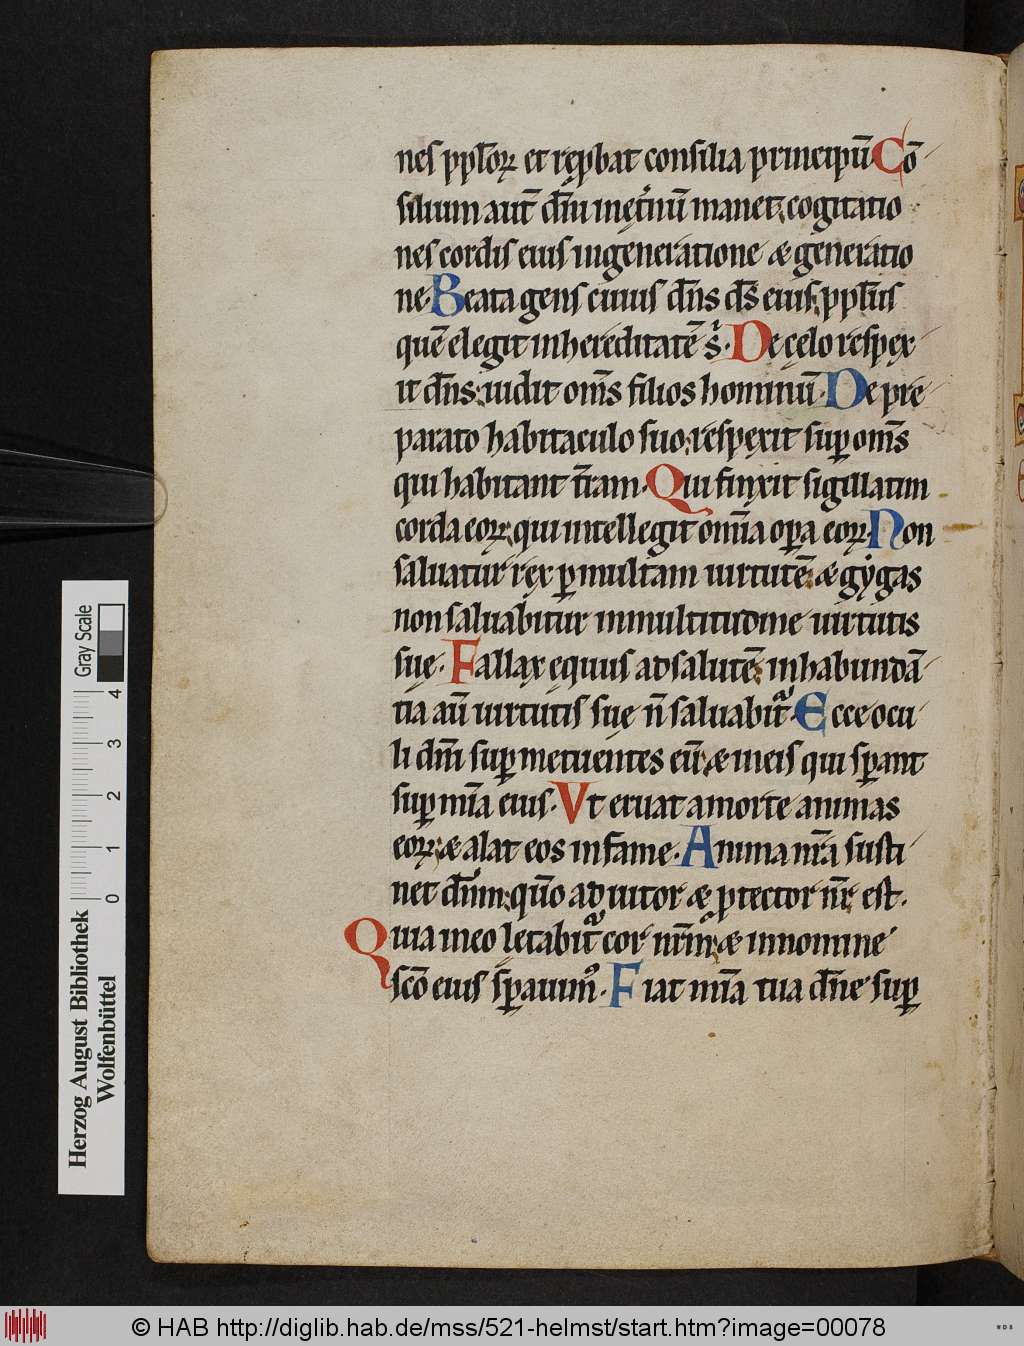 nes ppl̄oꝝ et rep̱bat consilia principū Cō
silium aut̄ dn̄i inęt̾nū manet; cogitatio
nes cordis eius ingeneratione & generatio
ne· Beata gens cuius dn̄s ds̄ eius; ppl̄us
quē elegit inhereditatē sͥ· De cęlo respex
it dn̄s; uidit om̄s filios hominū· De pre
parato habitaculo suo; respexit sup̱ om̄s
qui habitant t̄ram· Qui finxit sigillatim
corda eoꝝ; qui intellegit om̄ia op̱a eoꝝ· Non
saluatur rex ꝑ multam uirtutē; & gygas
non saluabitur inmultitudine uirtutis
suę· Fallax equus ad salutē; inhabundā
tia aū uirtutis suę n̄ saluabit᷑· Ecce ocu
li dn̄i sup̱ metuentes eū; & in eis qui sꝑant
sup̱ mīa eius· Vt eruat a morte animas
eoꝝ; & alat eos in fame· Anima nr̄a susti
net dn̄m; qūo adiutor & ꝓtector nr̄ est·
Quia in eo letabit᷑ cor nr̄m; & in nomine
scō eius sꝑauimꝰ· Fiat mīa tua dn̄e sup̱
Herzog August Bibliothek
Wolfenbüttel
0 1 2 3 4
Gray Scale
© HAB http://diglib.hab.de/mss/521-helmst/start.htm?image=00078